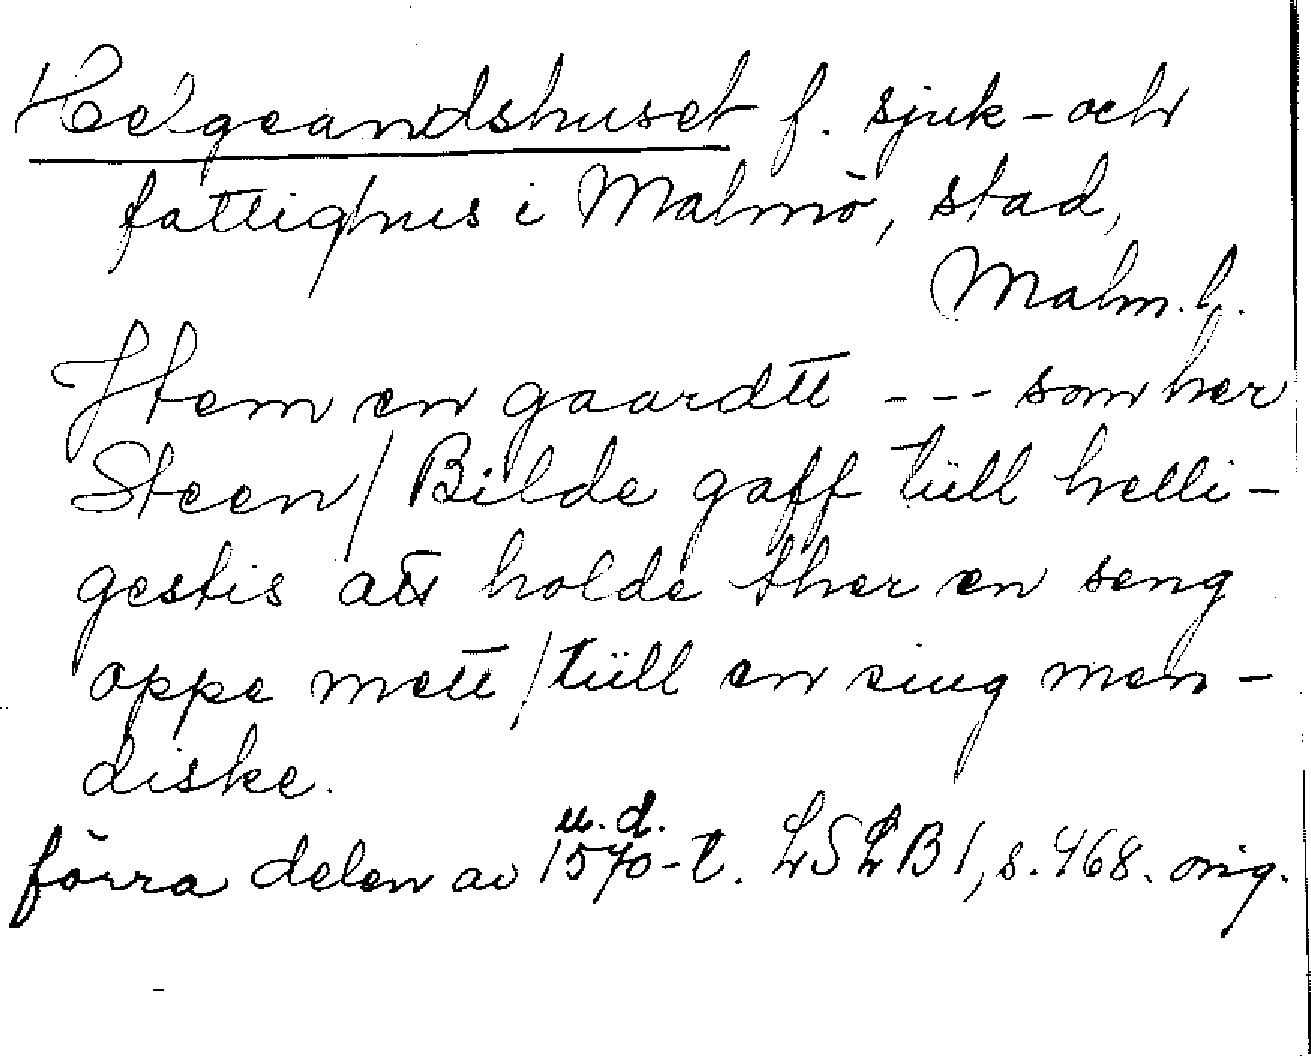 Helgeandshuset f. sjuk- och
fattighus i Malmö, stad,
Malm. l.
Item en gaardtt --- som her
Steen/ Bilde gaff tüll helli-
gestis att holde ther en seng
oppe mett / tüll en siug men-
diske.
u. d.
förra delen av 1570-t. LSLB 1, s. 468. orig.